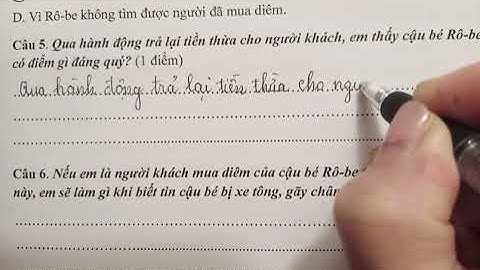 D. Vì Rô-be không tìm được người đã mua diêm.
Câu 5. Qua hành động trả lại tiền thừa cho người khách, em thấy cậu bé Rô-be
có điểm gì đáng quý? (1 điểm)
Qua hành động trả lại tiền thừa cho ngư
Câu 6. Nếu em là người khách mua diêm của cậu bé Rô-be
này, em sẽ làm gì khi biết tin cậu bé bị xe tông, gãy chân